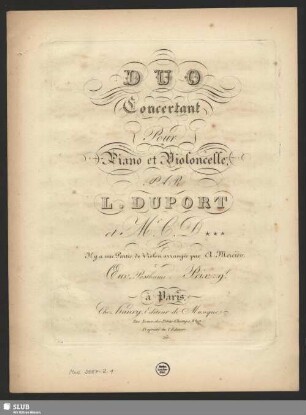 DUO
Concertant
Pour
Piano et Violoncelle,
Par
L. DUPORT
et M. C. D***
Il y a une Partie de Violon arrangée par A. Mercier
Œuv. Posthume Prix 9f
à Paris,
Editeur de Musique,
Propriété de l'Editeur
Mus. 2687-Q-1
SLUB
Wir führen Wissen.